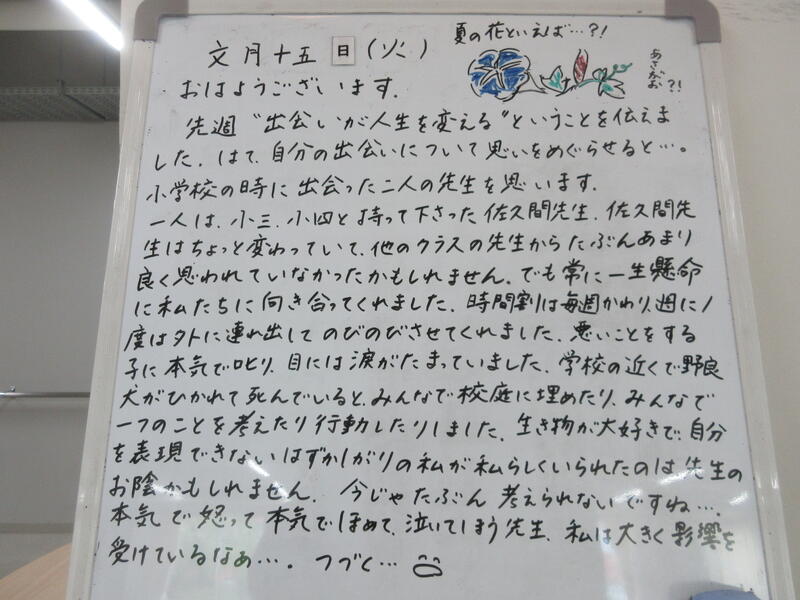 夏の花といえば…?!
文月十五日(火)
あさがお?!
おはようございます.
先週"出会いが人生を変える"ということを伝えま
した.はて、自分の出会いについて思いをめぐらせると…。
小学校の時に出会った二人の先生を思います.
一人は、小三、小四と持って下さった佐久間先生.佐久間先
生はちょっと変わっていて、他のクラスの先生からたぶんあまり
良く思われていなかったかもしれません.でも常に一生懸命
に私たちに向き合ってくれました.時間割は毎週かわり、週に1
度は外に連れ出してのびのびさせてくれました.悪いことをする
子に本気で叱り、目には涙がたまっていました.学校の近くで野良
犬がひかれて死んでいると、みんなで校庭に埋めたり、みんなで
一つのことを考えたり行動したりしました.生き物が大好きで、自分
を表現できないはずかしがりの私が私らしくいられたのは先生の
お陰かもしれません.今じゃたぶん考えられないですね….
本気で怒って本気でほめて、泣いてしまう先生.私は大きく影響を
受けているなぁ….つづく…